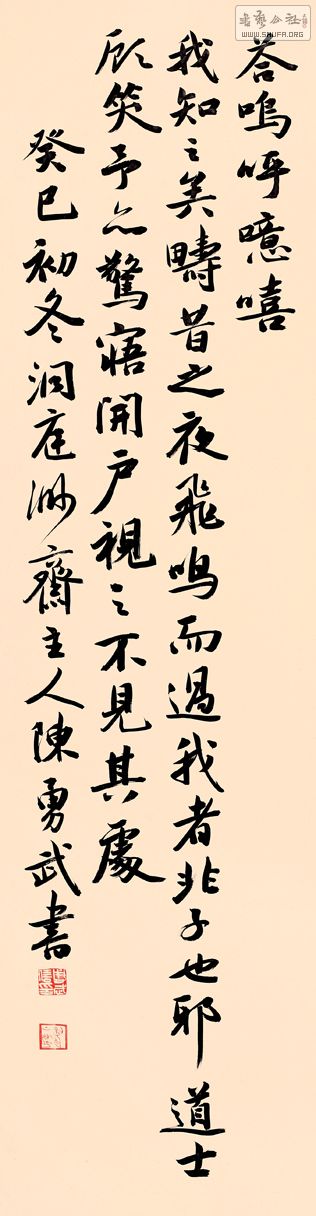 書藝公社
WWW.SHUFA.ORG
荅嗚呼噫嘻
我知之矣疇昔之夜飛鳴而過我者非子也耶道士
顧笑予亦驚寤開戶視之不見其處
癸巳初冬洞庭渺齋主人陳勇武書